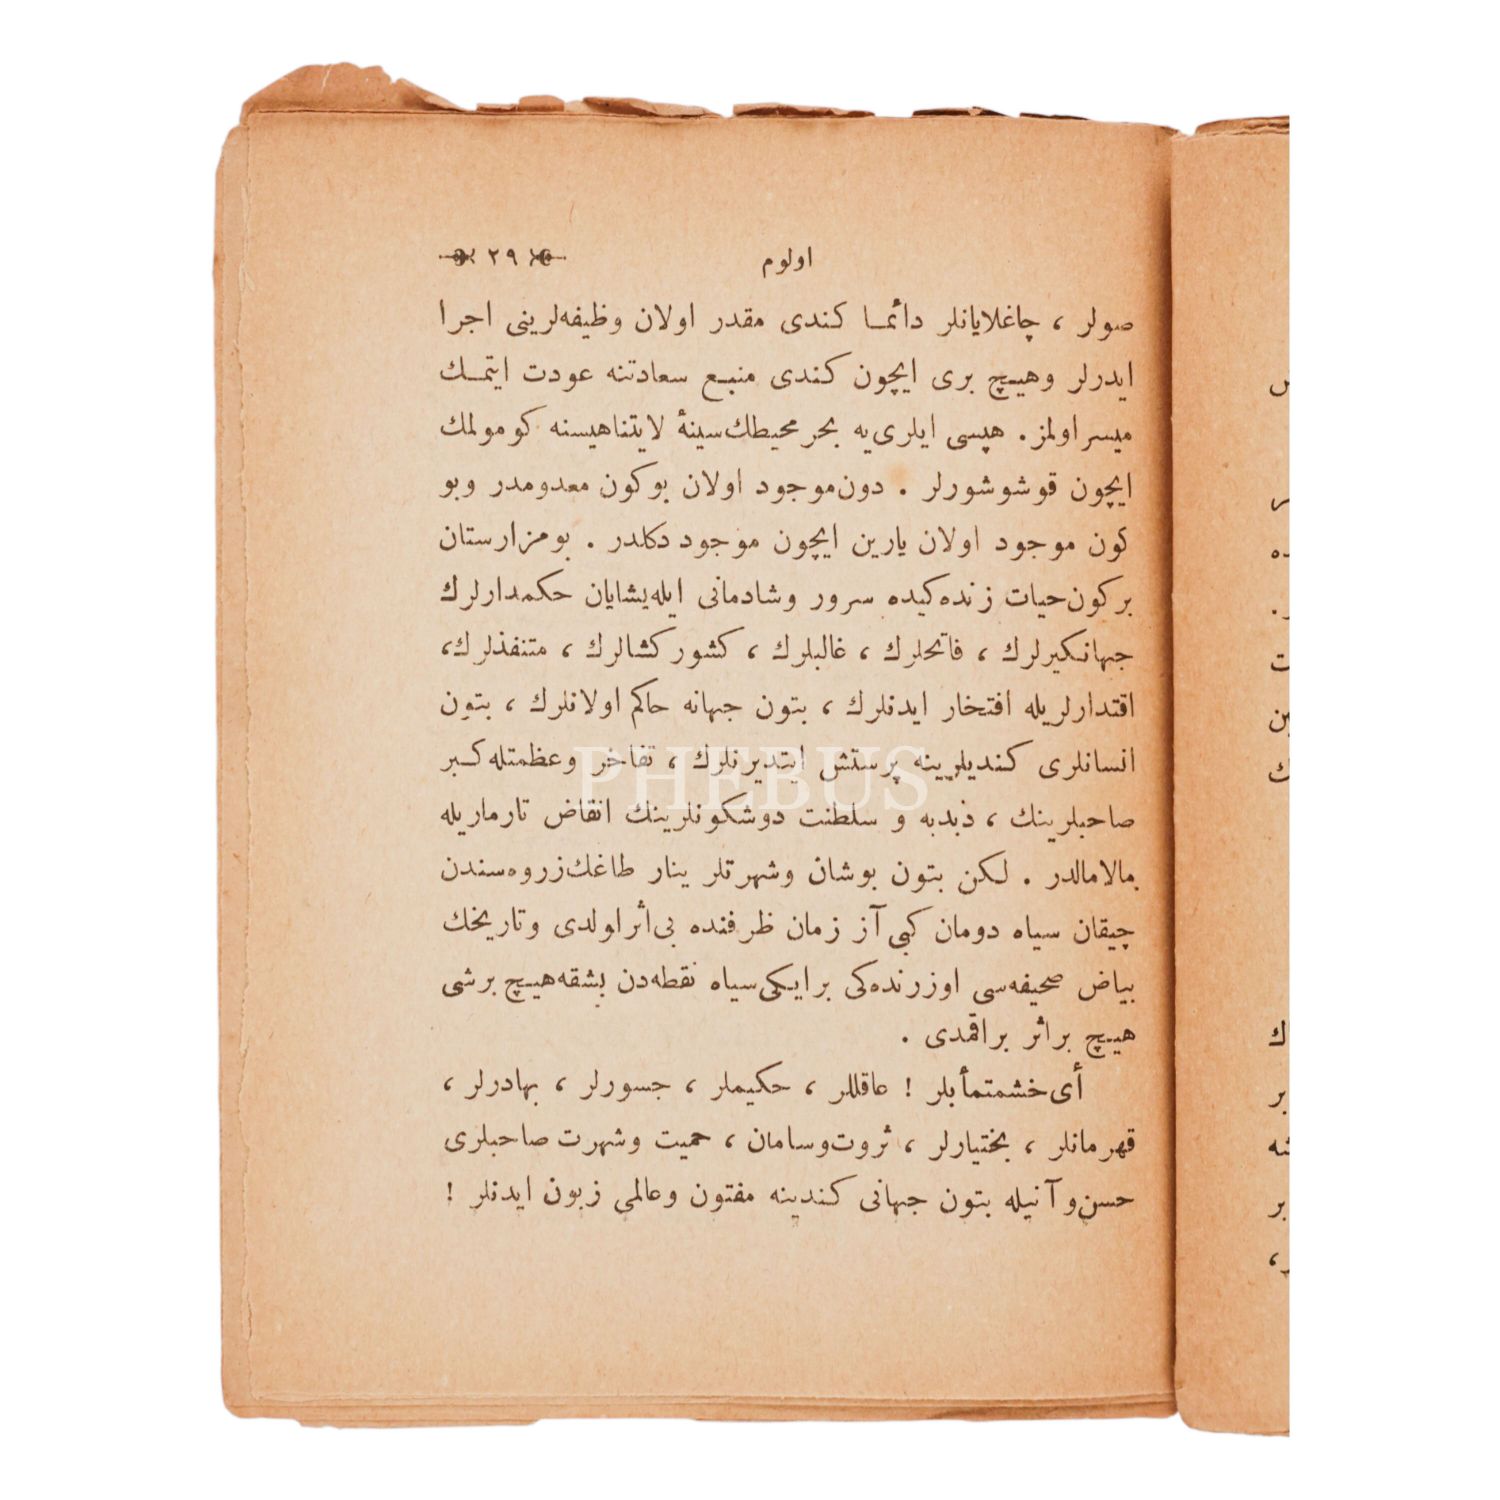 اولوم ٢٩
صولر ، چاغلایانلر دائمـا کندی مقدر اولان وظیفه‌لرینی اجرا
ایدرلر وهیـچ بری ایچون کندی منبـع سعادتنه عودت ایتمـك
میسر اولمز . هپسی ایلری‌یه بحر محیطك سینهٔ لایتناهیسنه کومولمك
ایچون قوشوشورلر . دون موجود اولان بوکون معدومدر وبو
کون موجود اولان یارین ایچون موجود دکلدر . بومزارستان
برکون حیات زنده‌کیده سرور وشادمانی ایله یشایان حکمدارلرك
جهانکیرلرك ، فاتحلرك ، غالبلرك ، کشورکشالرك ، متنفذلرك،
اقتدارلریله افتخار ایدنلرك ، بتون جهانه حاکم اولانلرك ، بتون
انسانلری کندیلرینه پرستش ایتدیرنلرك ، تفاخر وعظمتله کـبر
صاحبلرینك ، دبدبه و سلطنت دوشکونلرینك انقاض تارماریله
مالامالدر . لـکن بتون بوشان وشهرتلر ینار طاغك زروه‌سندن
چیقان سیاه دومان کبی آز زمان ظرفنده بی‌اثر اولدی وتاریخك
بیاض صحیفه‌سی اوزرنده‌کی برایـکی سیاه نقطه‌دن بشقه هیـچ برشی
هیـچ براثر براقمدی .
أی خشمتمأبلر ! عاقللر ، حکیملر ، جسورلر ، بهادرلر ،
قهرمانلر ، بختیارلر ، ثروت‌وسامان ، حمیت وشهرت صاحبلری
حسن‌وآنیله بتون جهانی کندینه مفتون وعالمی زبون ایدنلر !
PHEBUS